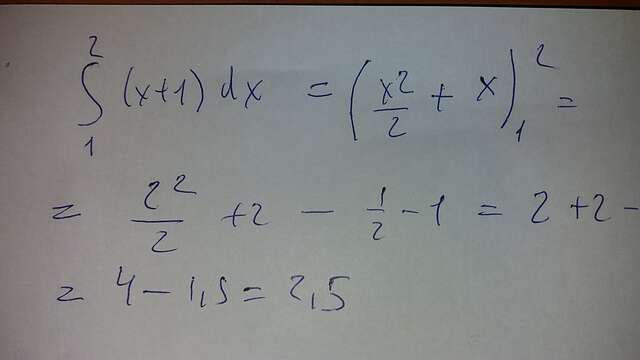 ∫₁² (x+1) dx = (x²/2 + x)|₁² =
= 2²/2 + 2 - 1/2 - 1 = 2+2-
= 4 - 1,5 = 2,5